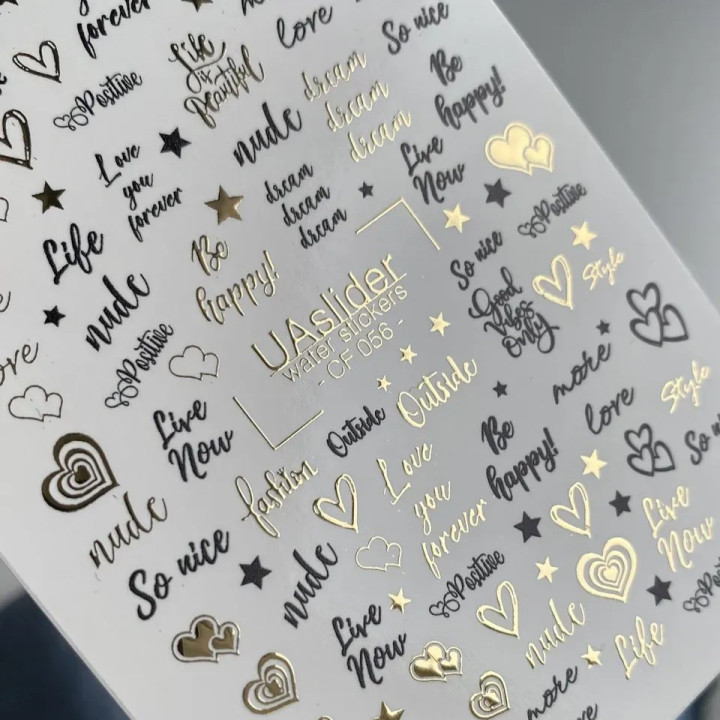 forever
love
So nice
Life
is
Beautiful
Positive
dream
dream
dream
Be
happy!
nude
Love
you
forever
dream
dream
dream
Live
Now
Life
Be
happy!
So nice
Positive
nude
UAslider
water stickers
- CF 056 -
Good
Vibes
Only
Style
Positive
Live
Now
Outside
Outside
more
love
Style
Be
happy!
fashion
Love
you
forever
nude
So nice
nude
Live
Now
Positive
Live
Now
nude
Life
more